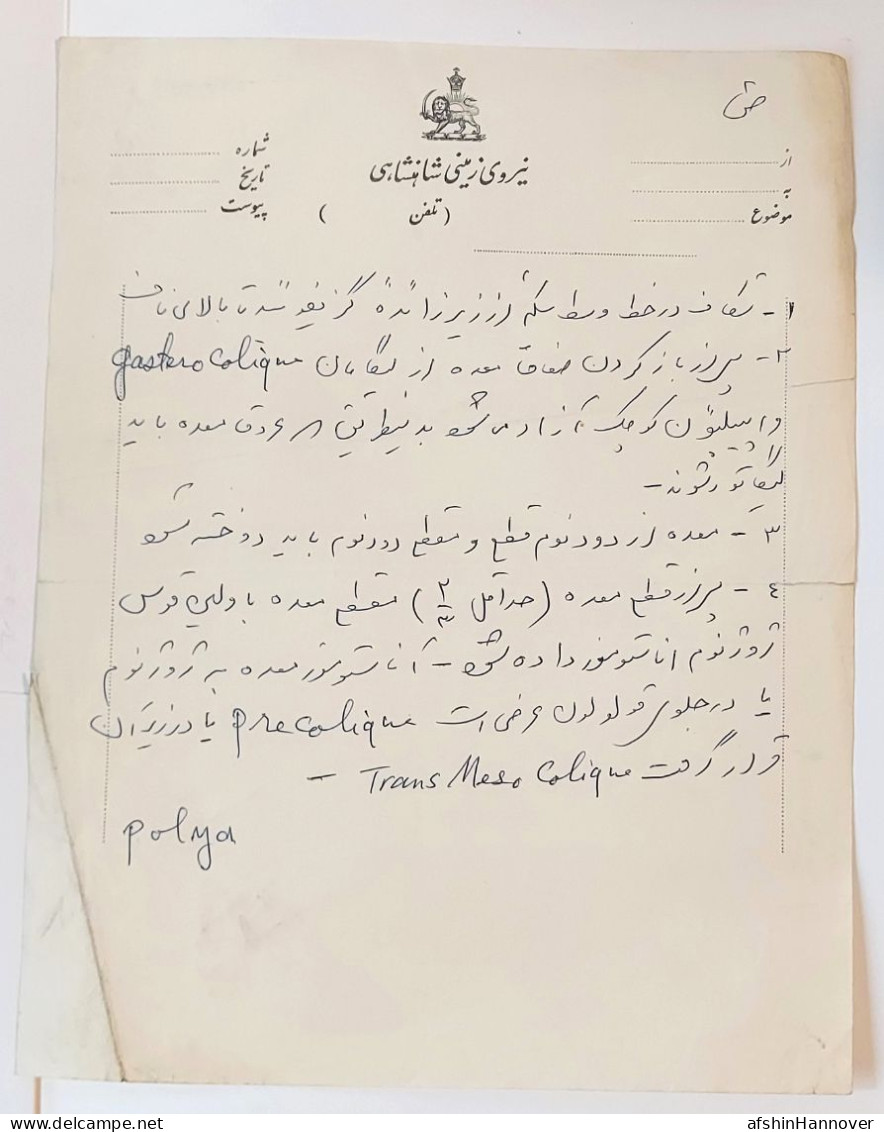 ص ۲
نیروی زمینی شاهنشاهی
از
به
موضوع
شماره
تاریخ
پیوست
(تلفن )
۱- شکاف در خط وسط شکم از زیر زائده گزیفوئید تا بالای ناف
۲- پس از باز کردن صفاق معده از لیگامان gastero colique
و اپیپلون کوچک آزاد می شود بدین عروق معده باید
لیگاتور شوند-
۳- معده از دودنوم قطع و مقطع دودنوم باید دوخته شود
٤- پس از قطع معده (حداقل ۲/۳) مقطع معده با اولین قوس
ژوژنوم اناستوموز داده شود - آناستوموز معده به ژوژنوم
یا در جلوی قولون عرضی است precolique یا در زیر آن
قرار گرفت Trans Meso Colique -
polya
delcampe.net
afshinHannover